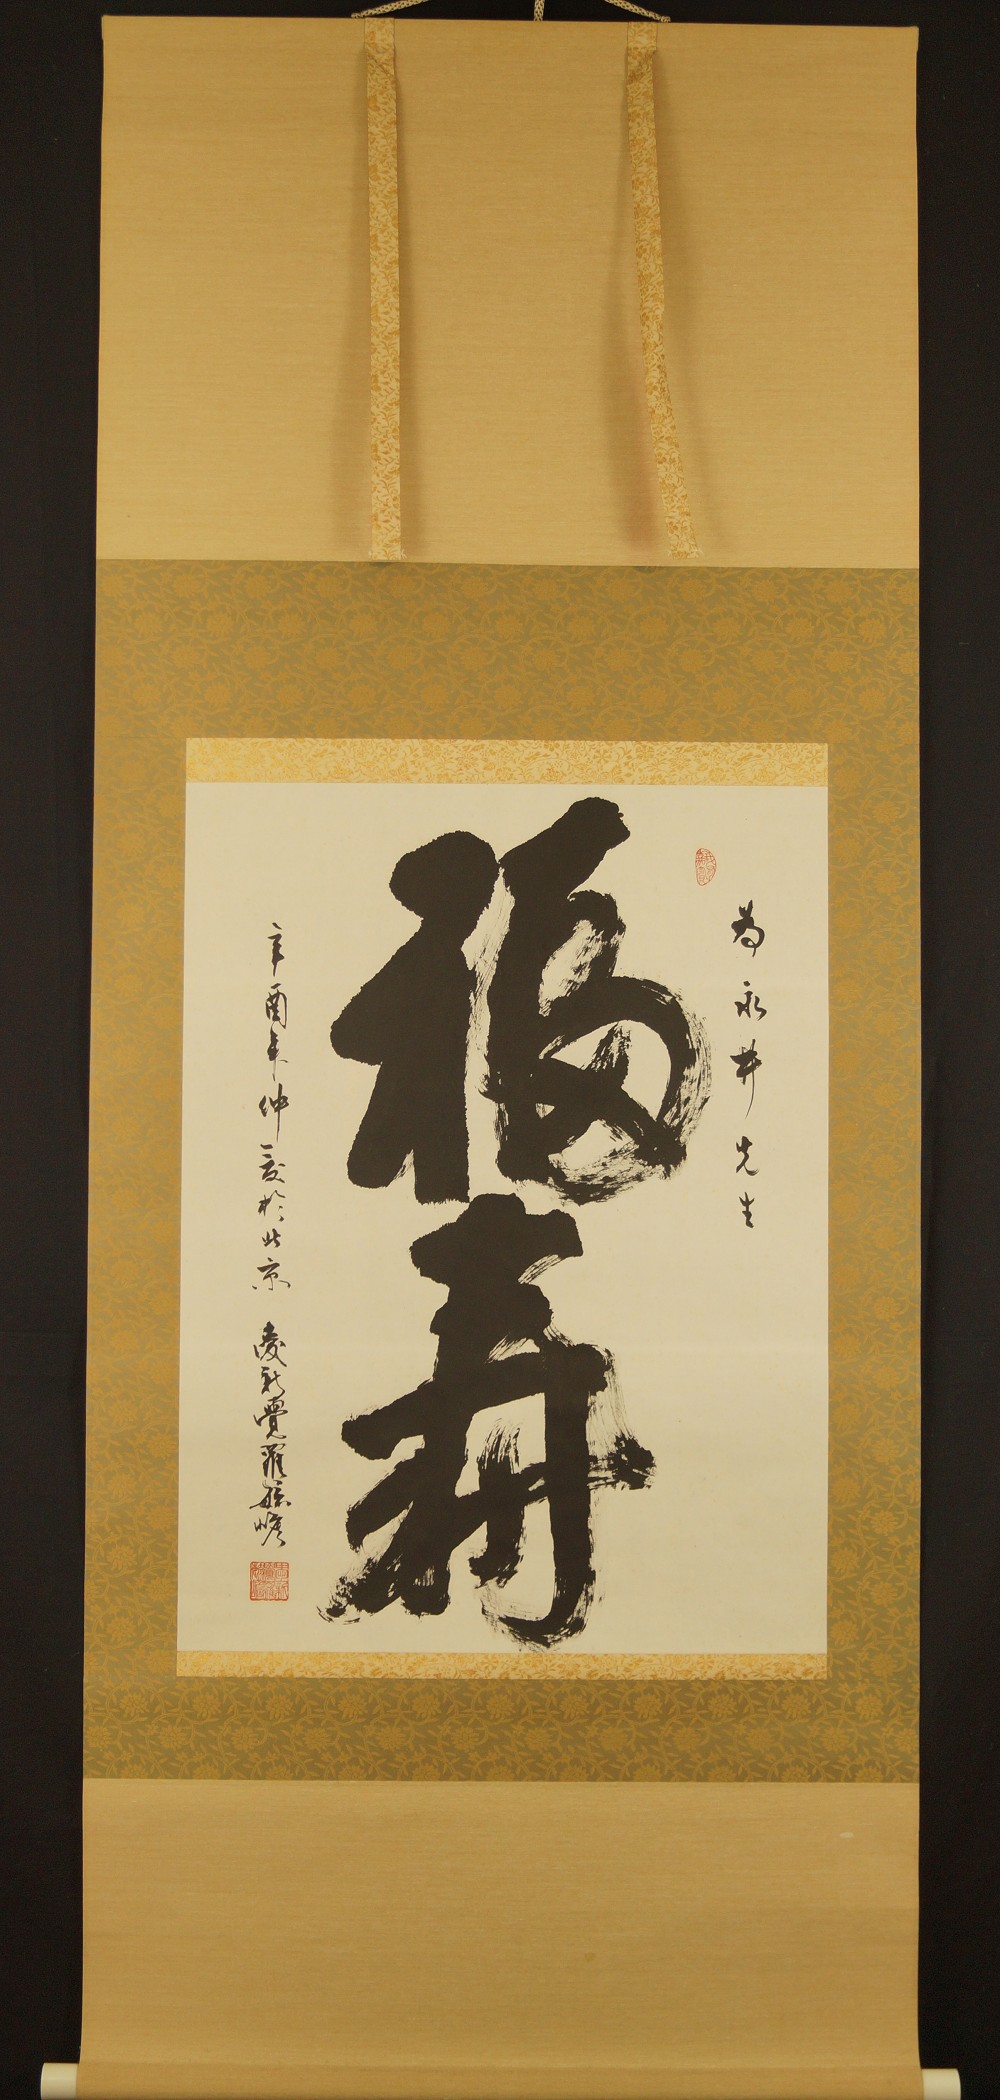 為永井先生
福壽
辛酉年仲夏於北京 愛新覺羅毓嶦